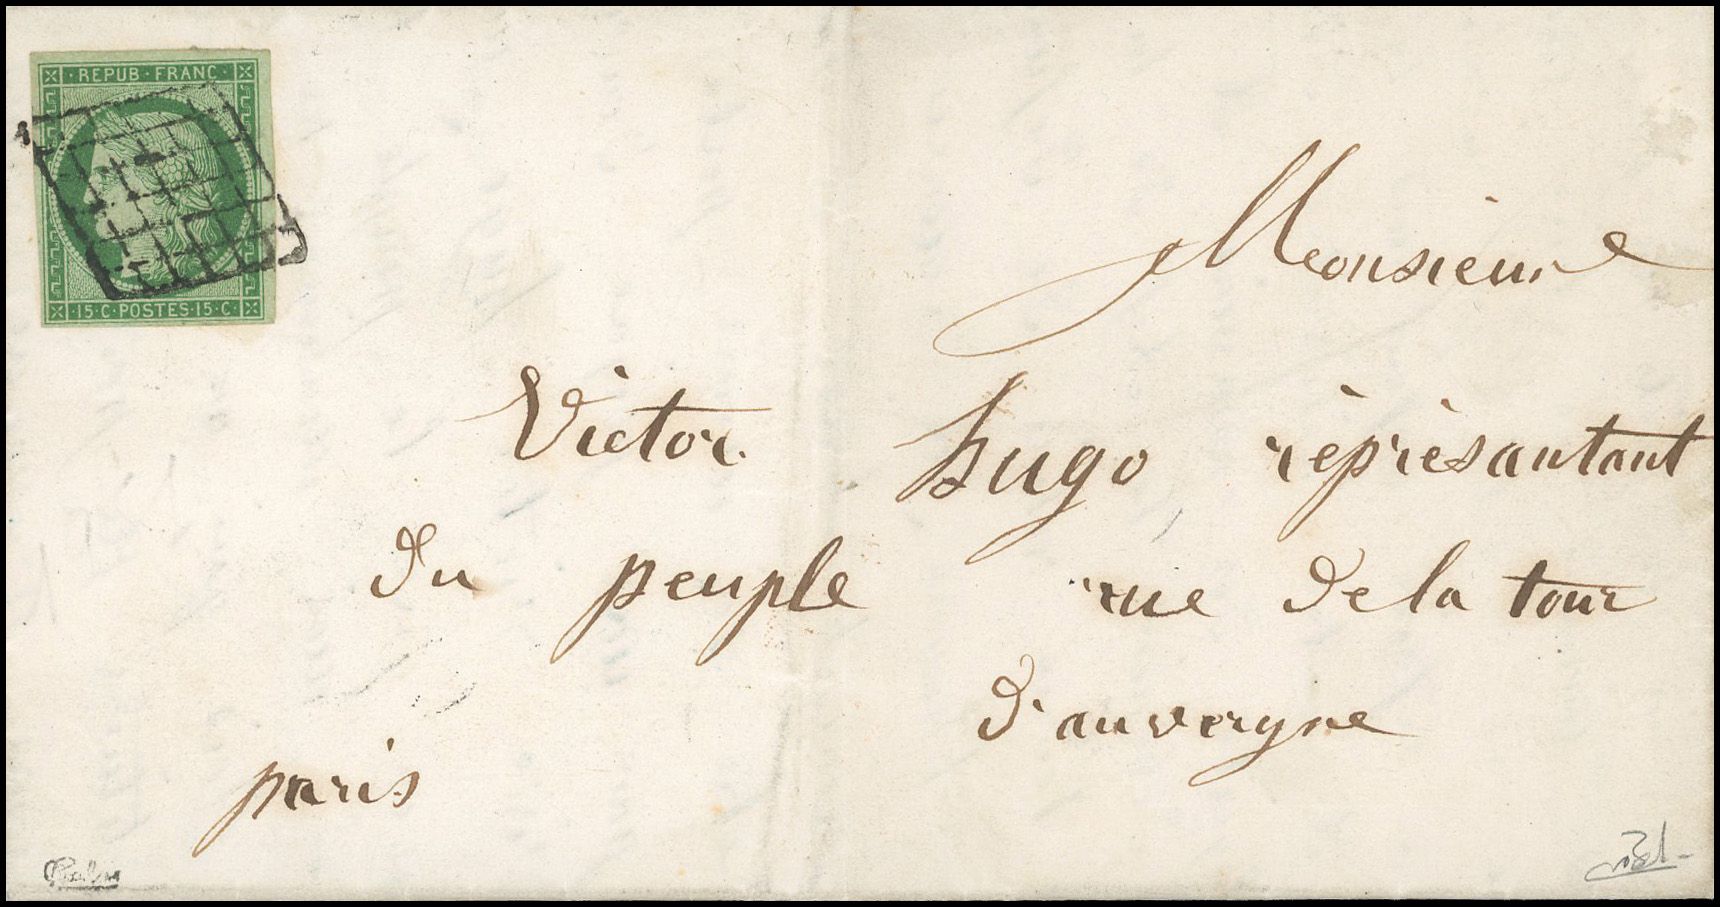 REPUB · FRANC
· 15 · C · POSTES · 15 · C ·
Monsieur
Victor hugo réprésantant
du peuple rue de la tour
d'auvergne
paris